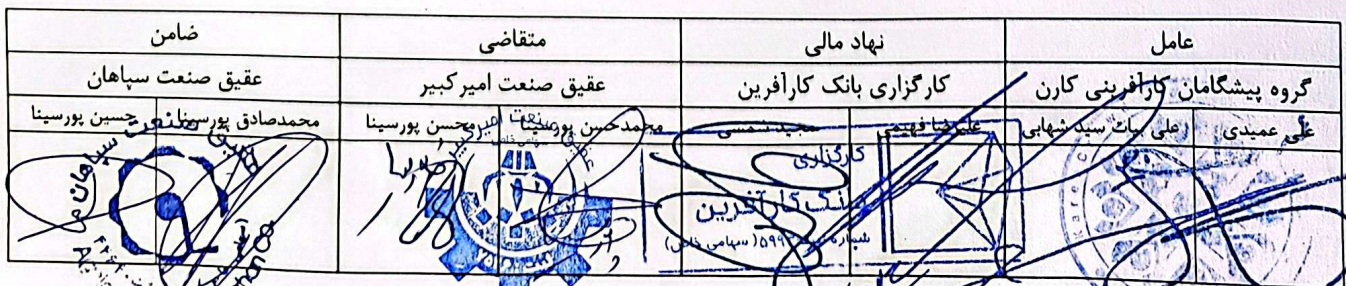 عامل نهاد مالی متقاضی ضامن
گروه پیشگامان کارآفرینی کارن کارگزاری بانک کارآفرین عقیق صنعت امیرکبیر عقیق صنعت سپاهان
علی عمیدی علی بیات سید شهابی علیرضا فهیمی مجید شمسی محمدحسن پورسینا محسن پورسینا محمدصادق پورسینا حسین پورسینا
کارگزاری
بانک کارآفرین
(سهامی خاص)
عقیق صنعت امیرکبیر
عقیق صنعت سپاهان